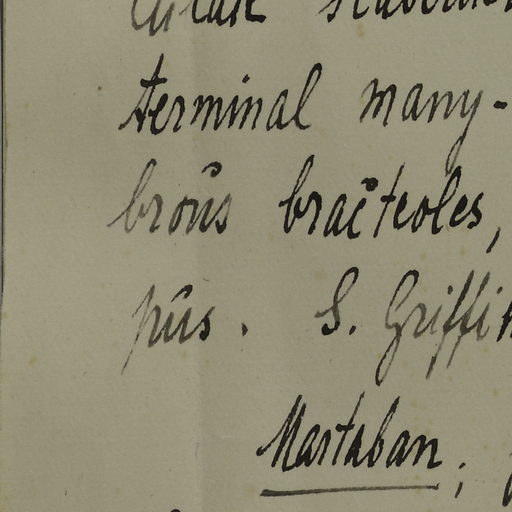 terminal many-
broŭs bracteoles,
pŭs. S. Griffi
Martaban;